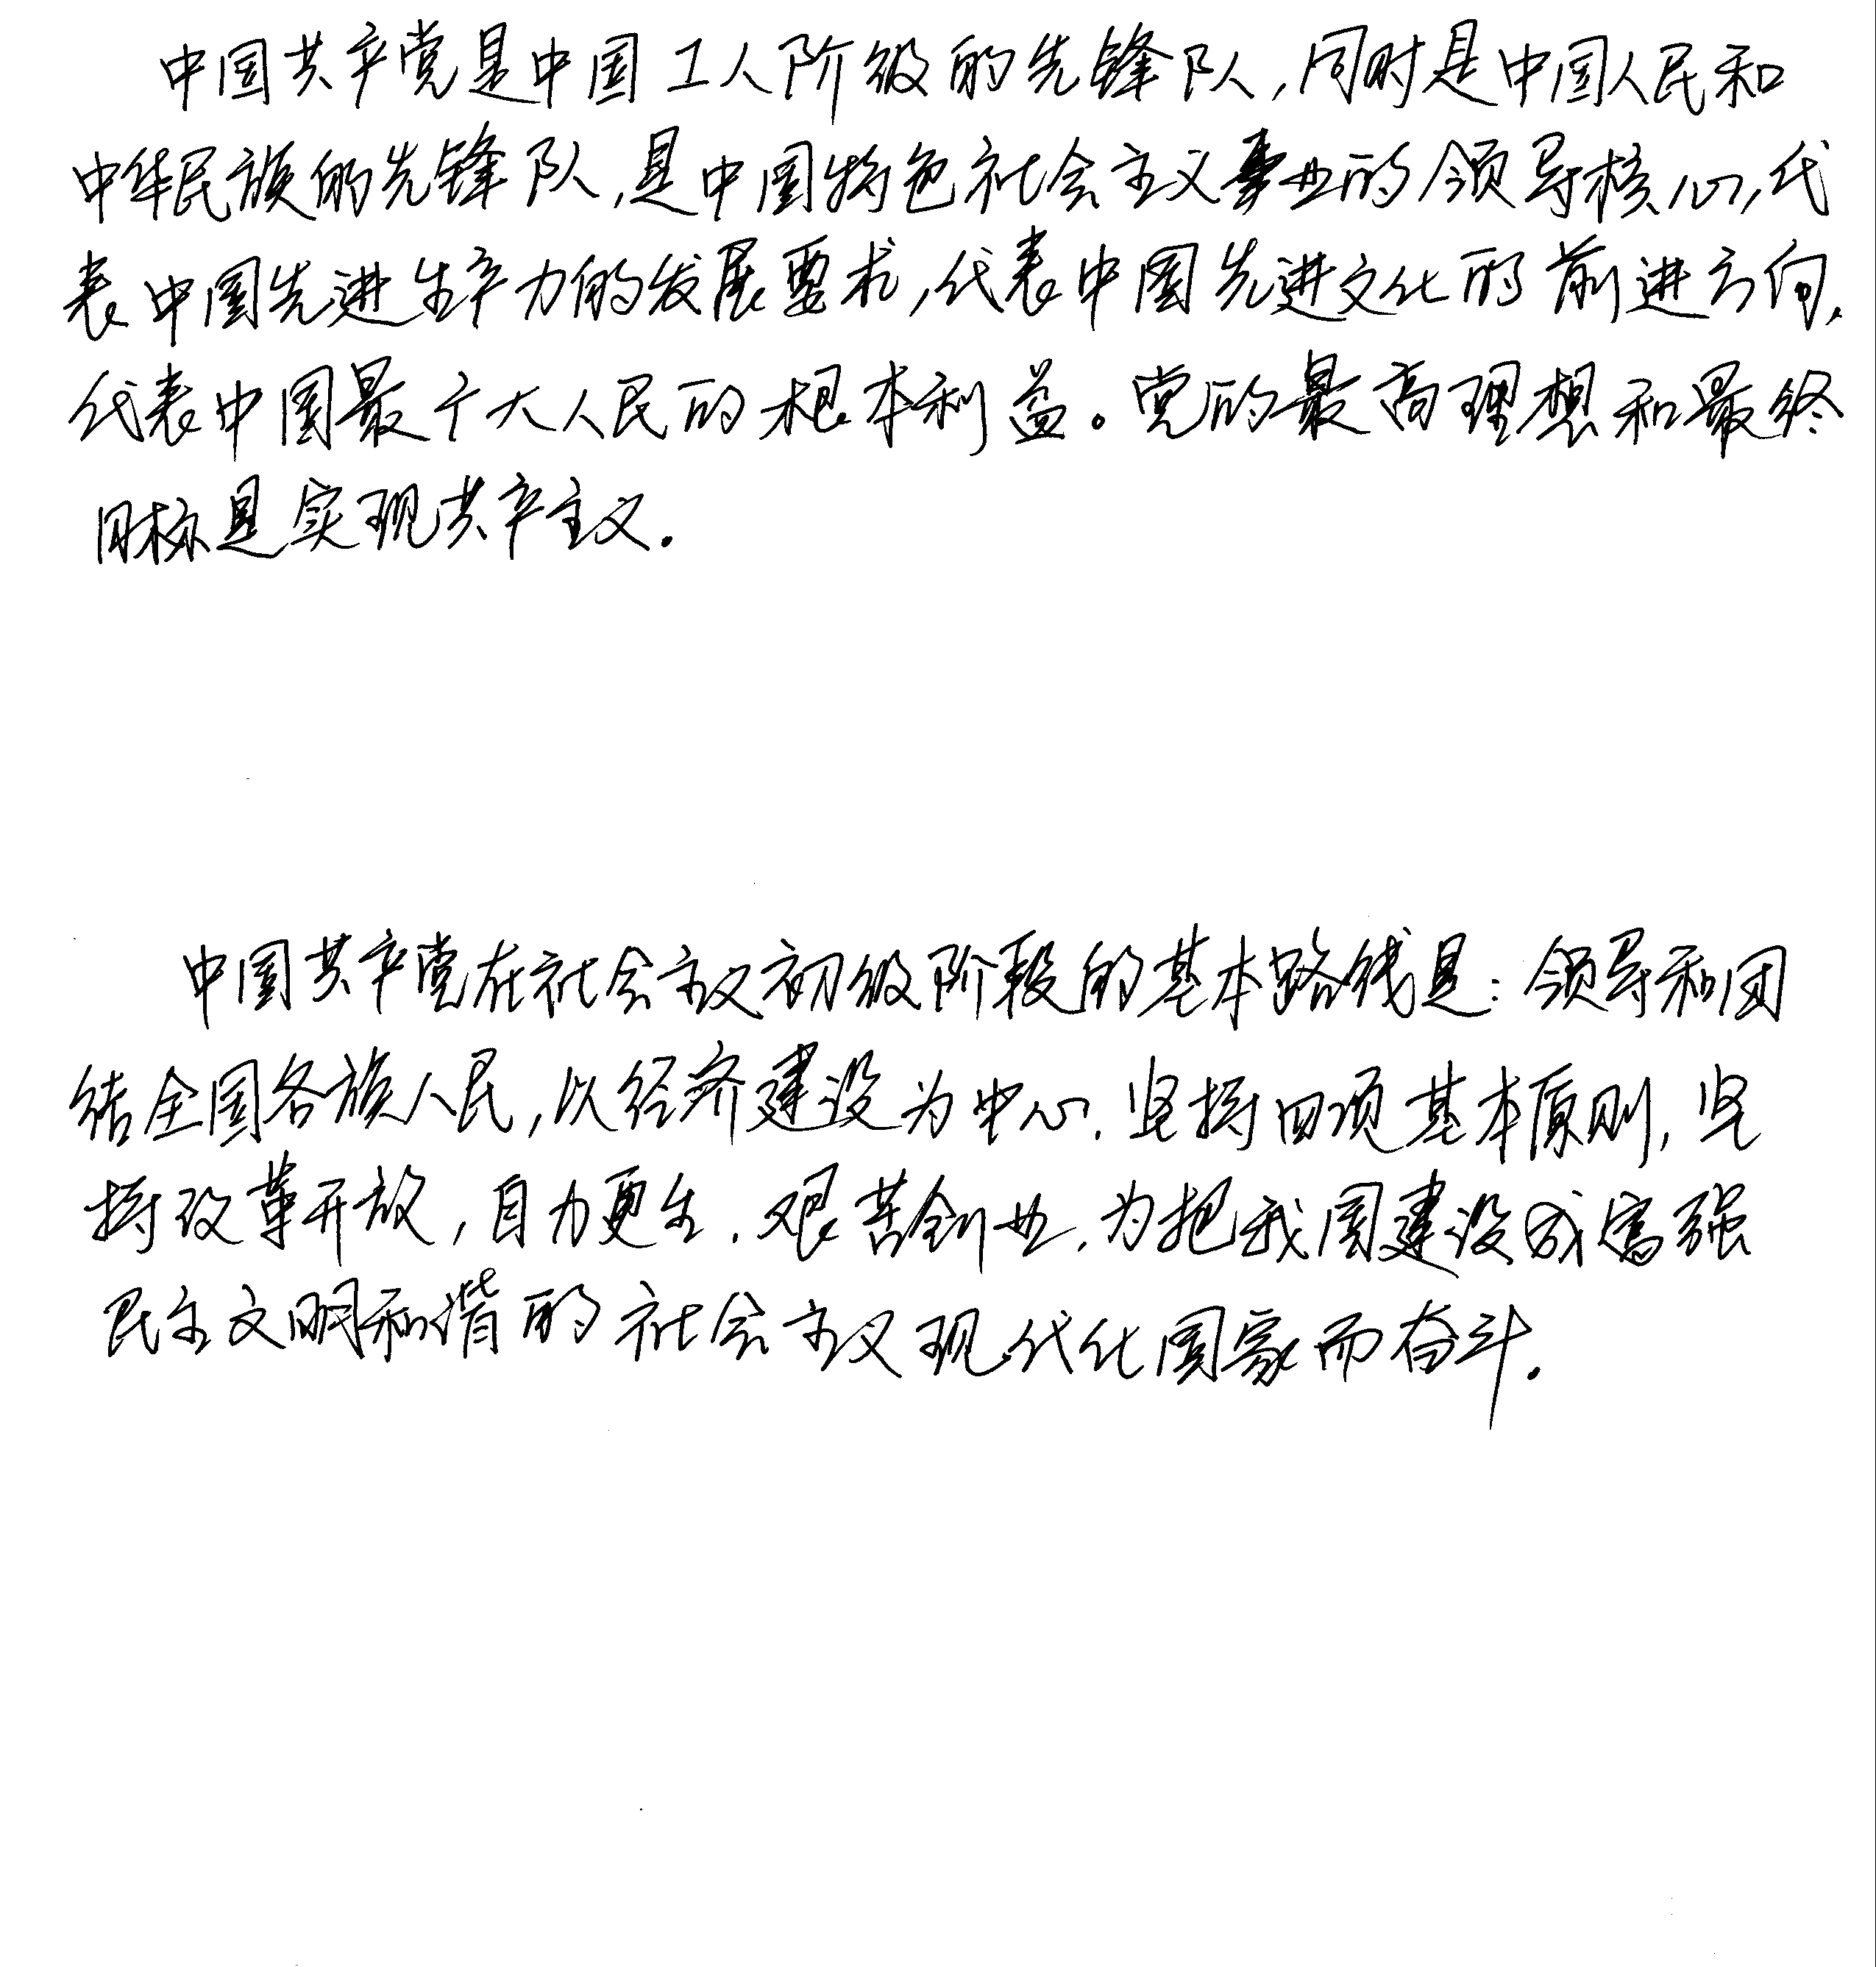 中国共产党是中国工人阶级的先锋队,同时是中国人民和
中华民族的先锋队,是中国特色社会主义事业的领导核心,代
表中国先进生产力的发展要求,代表中国先进文化的前进方向,
代表中国最广大人民的根本利益。党的最高理想和最终
目标是实现共产主义.
中国共产党在社会主义初级阶段的基本路线是:领导和团
结全国各族人民,以经济建设为中心,坚持四项基本原则,坚
持改革开放,自力更生.艰苦创业,为把我国建设成富强
民主文明和谐的社会主义现代化国家而奋斗.